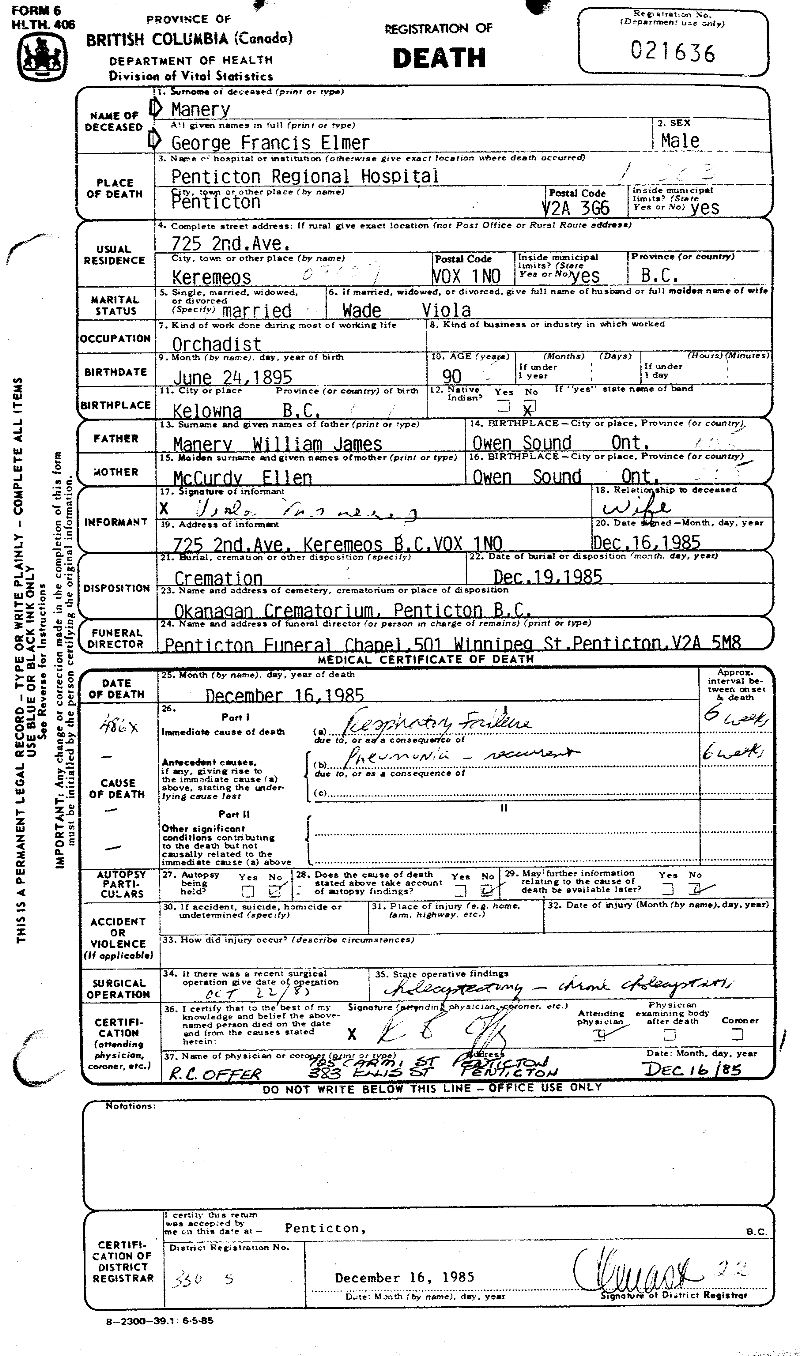 FORM 6
HLTH. 406
PROVINCE OF
BRITISH COLUMBIA (Canada)
DEPARTMENT OF HEALTH
Division of Vital Statistics
REGISTRATION OF
DEATH
Registration No.
(Department use only)
021636
THIS IS A PERMANENT LEGAL RECORD – TYPE OR WRITE PLAINLY – COMPLETE ALL ITEMS
USE BLUE OR BLACK INK ONLY
See Reverse for Instructions
IMPORTANT: Any change or correction made in the completion of this form
must be initialled by the person certifying the original information.
NAME OF DECEASED
1. Surname of deceased (print or type)
Manery
All given names in full (print or type)
George Francis Elmer
2. SEX
Male
PLACE OF DEATH
3. Name of hospital or institution (otherwise give exact location where death occurred)
Penticton Regional Hospital
City, town or other place (by name)
Penticton
Postal Code
V2A 3G6
Inside municipal limits? (State Yes or No) yes
USUAL RESIDENCE
4. Complete street address: If rural give exact location (not Post Office or Rural Route address)
725 2nd.Ave.
City, town or other place (by name)
Keremeos
Postal Code
VOX 1NO
Inside municipal limits? (State Yes or No) yes
Province (or country)
B.C.
MARITAL STATUS
5. Single, married, widowed, or divorced (Specify) married
6. If married, widowed, or divorced, give full name of husband or full maiden name of wife
Wade Viola
OCCUPATION
7. Kind of work done during most of working life
Orchadist
8. Kind of business or industry in which worked
BIRTHDATE
9. Month (by name), day, year of birth
June 24,1895
10. AGE (years) (Months) (Days) (Hours) (Minutes)
90
If under 1 year
If under 1 day
BIRTHPLACE
11. City or place Province (or country) of birth
Kelowna B.C.
12. Native Indian? Yes No If "yes" state name of band
X
FATHER
13. Surname and given names of father (print or type)
Manery William James
14. BIRTHPLACE – City or place, Province (or country)
Owen Sound Ont.
MOTHER
15. Maiden surname and given names of mother (print or type)
McCurdy Ellen
16. BIRTHPLACE – City or place, Province (or country)
Owen Sound Ont.
INFORMANT
17. Signature of informant
X Viola
18. Relationship to deceased
wife
19. Address of informant
725 2nd.Ave. Keremeos B.C.VOX 1NO
20. Date signed – Month, day, year
Dec.16,1985
DISPOSITION
21. Burial, cremation or other disposition (specify)
Cremation
22. Date of burial or disposition (month, day, year)
Dec.19,1985
23. Name and address of cemetery, crematorium or place of disposition
Okanagan Crematorium, Penticton B.C.
FUNERAL DIRECTOR
24. Name and address of funeral director (or person in charge of remains) (print or type)
Penticton Funeral Chapel,501 Winnipeg St.Penticton,V2A 5M8
MEDICAL CERTIFICATE OF DEATH
DATE OF DEATH
25. Month (by name), day, year of death
December 16,1985
Approx. interval between onset & death
486X
CAUSE OF DEATH
26. Part I
Immediate cause of death (a) Respiratory Failure 6 weeks
due to, or as a consequence of
Antecedent causes, if any, giving rise to the immediate cause (a) above, stating the underlying cause last
(b) Pneumonia – recurrent 6 weeks
due to, or as a consequence of
(c)
II
Part II
Other significant conditions contributing to the death but not causally related to the immediate cause (a) above
AUTOPSY PARTICULARS
27. Autopsy being held? Yes No
28. Does the cause of death stated above take account of autopsy findings? Yes No
29. May further information relating to the cause of death be available later? Yes No
ACCIDENT OR VIOLENCE (If applicable)
30. If accident, suicide, homicide or undetermined (specify)
31. Place of injury (e.g. home, farm, highway, etc.)
32. Date of injury (Month (by name), day, year)
33. How did injury occur? (describe circumstances)
SURGICAL OPERATION
34. If there was a recent surgical operation give date of operation
OCT 22/85
35. State operative findings
CERTIFICATION (attending physician, coroner, etc.)
36. I certify that to the best of my knowledge and belief the above-named person died on the date and from the causes stated herein:
Signature (attending physician, coroner, etc.)
X
Attending physician
Physician examining body after death
Coroner
37. Name of physician or coroner (print or type) Address
R.C. OFFER
383 ELLIS ST PENTICTON
PENTICTON
Date: Month, day, year
DEC 16/85
DO NOT WRITE BELOW THIS LINE – OFFICE USE ONLY
Notations:
CERTIFICATION OF DISTRICT REGISTRAR
I certify this return was accepted by me on this date at – Penticton, B.C.
District Registration No.
330 5
December 16, 1985
Date: Month (by name), day, year
Signature of District Registrar
B–2300–39.1: 6-5-85